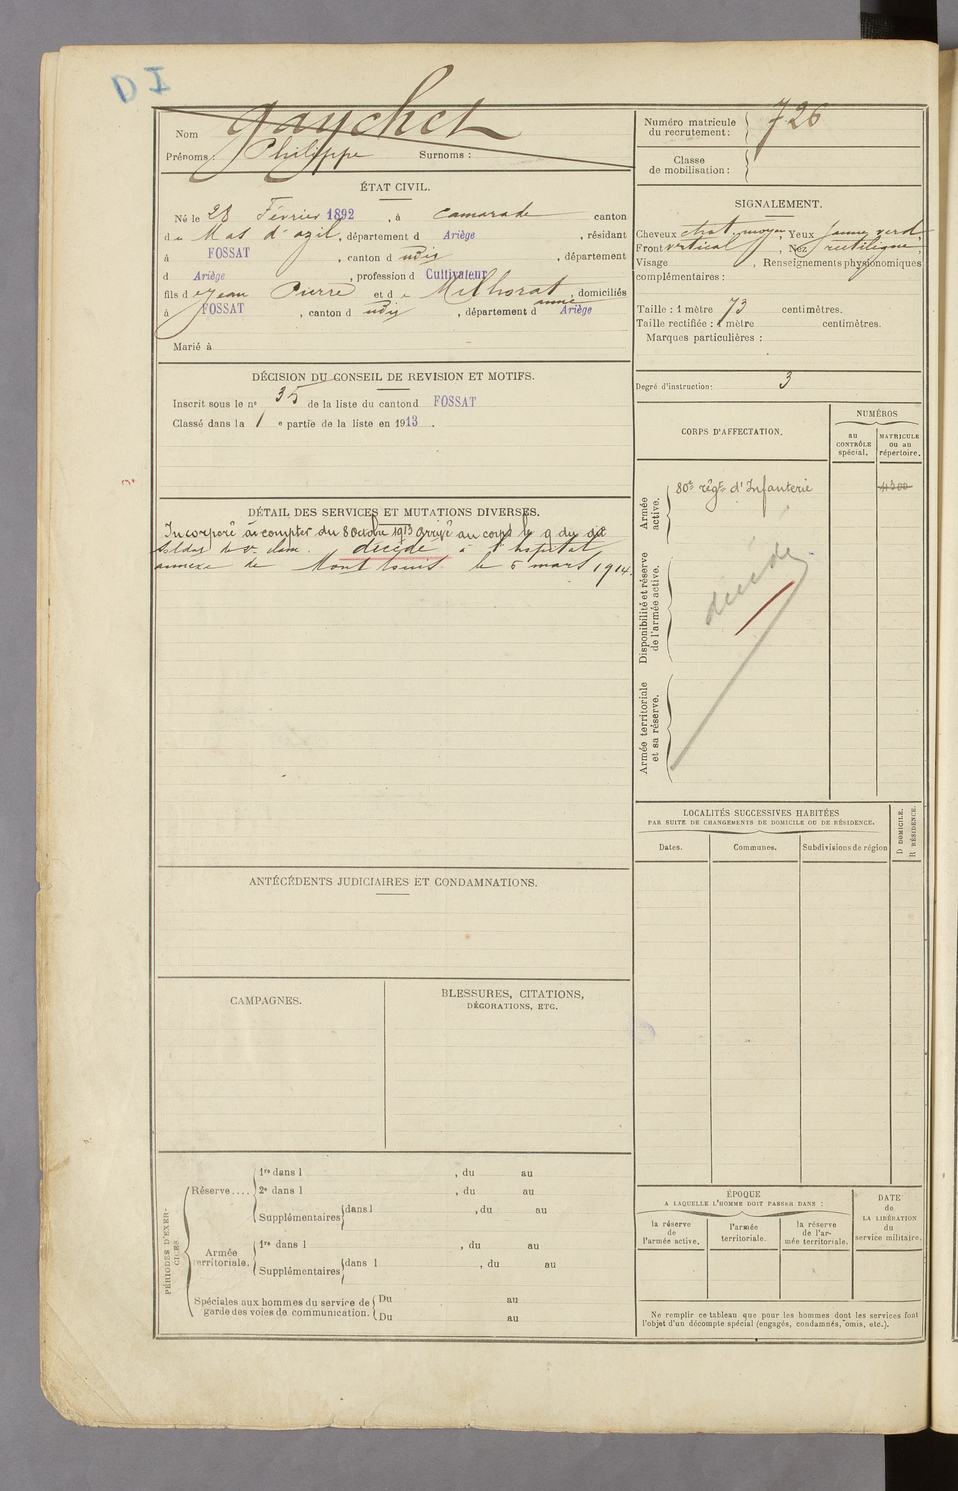 D I
Nom Gauchet
Prénoms : Philippe Surnoms :
ÉTAT CIVIL.
Né le 28 Février 1892, à Camarade canton
de Mas d'azil, département d Ariège, résidant
à FOSSAT, canton d udis, département
d Ariège, profession d Cultivateur
fils de Jean Pierre et de Milhorat anne, domiciliés
à FOSSAT, canton d udis, département d Ariège
Marié à
DÉCISION DU CONSEIL DE REVISION ET MOTIFS.
Inscrit sous le n° 35 de la liste du canton d FOSSAT
Classé dans la 1e partie de la liste en 1913.
DÉTAIL DES SERVICES ET MUTATIONS DIVERSES.
Incorporé à compter du 8 Octobre 1913 arrivé au corps le 9 du dit
soldat de 2e clase. décédé à l'hopital
annexe de Mont Louis le 5 mars 1914.
ANTÉCÉDENTS JUDICIAIRES ET CONDAMNATIONS.
CAMPAGNES.
BLESSURES, CITATIONS,
DÉCORATIONS, ETC.
PÉRIODES D'EXERCICES.
Réserve....
1re dans l , du au
2e dans l , du au
Supplémentaires dans l , du au
Armée territoriale.
1re dans l , du au
Supplémentaires dans l , du au
Spéciales aux hommes du service de Du au
garde des voies de communication. Du au
Numéro matricule
du recrutement : 726
Classe
de mobilisation :
SIGNALEMENT.
Cheveux chat. moyen, Yeux jaune verd,
Front vertical, Nez rectiligne,
Visage , Renseignements physionomiques
complémentaires :
Taille : 1 mètre 73 centimètres.
Taille rectifiée : 1 mètre centimètres.
Marques particulières :
Degré d'instruction : 3
CORPS D'AFFECTATION.
NUMÉROS
au
CONTRÔLE
spécial.
MATRICULE
ou au
répertoire.
Armée
active.
80e régt d'Infanterie
Disponibilité et réserve
de l'armée active.
décédé
Armée territoriale
et sa réserve.
LOCALITÉS SUCCESSIVES HABITÉES
PAR SUITE DE CHANGEMENTS DE DOMICILE OU DE RÉSIDENCE.
D DOMICILE.
R RÉSIDENCE.
Dates. Communes. Subdivisions de région
ÉPOQUE
A LAQUELLE L'HOMME DOIT PASSER DANS :
la réserve
de
l'armée active.
l'armée
territoriale.
la réserve
de l'ar-
mée territoriale.
DATE
de
LA LIBÉRATION
du
service militaire.
Ne remplir ce tableau que pour les hommes dont les services font
l'objet d'un décompte spécial (engagés, condamnés, omis, etc.).